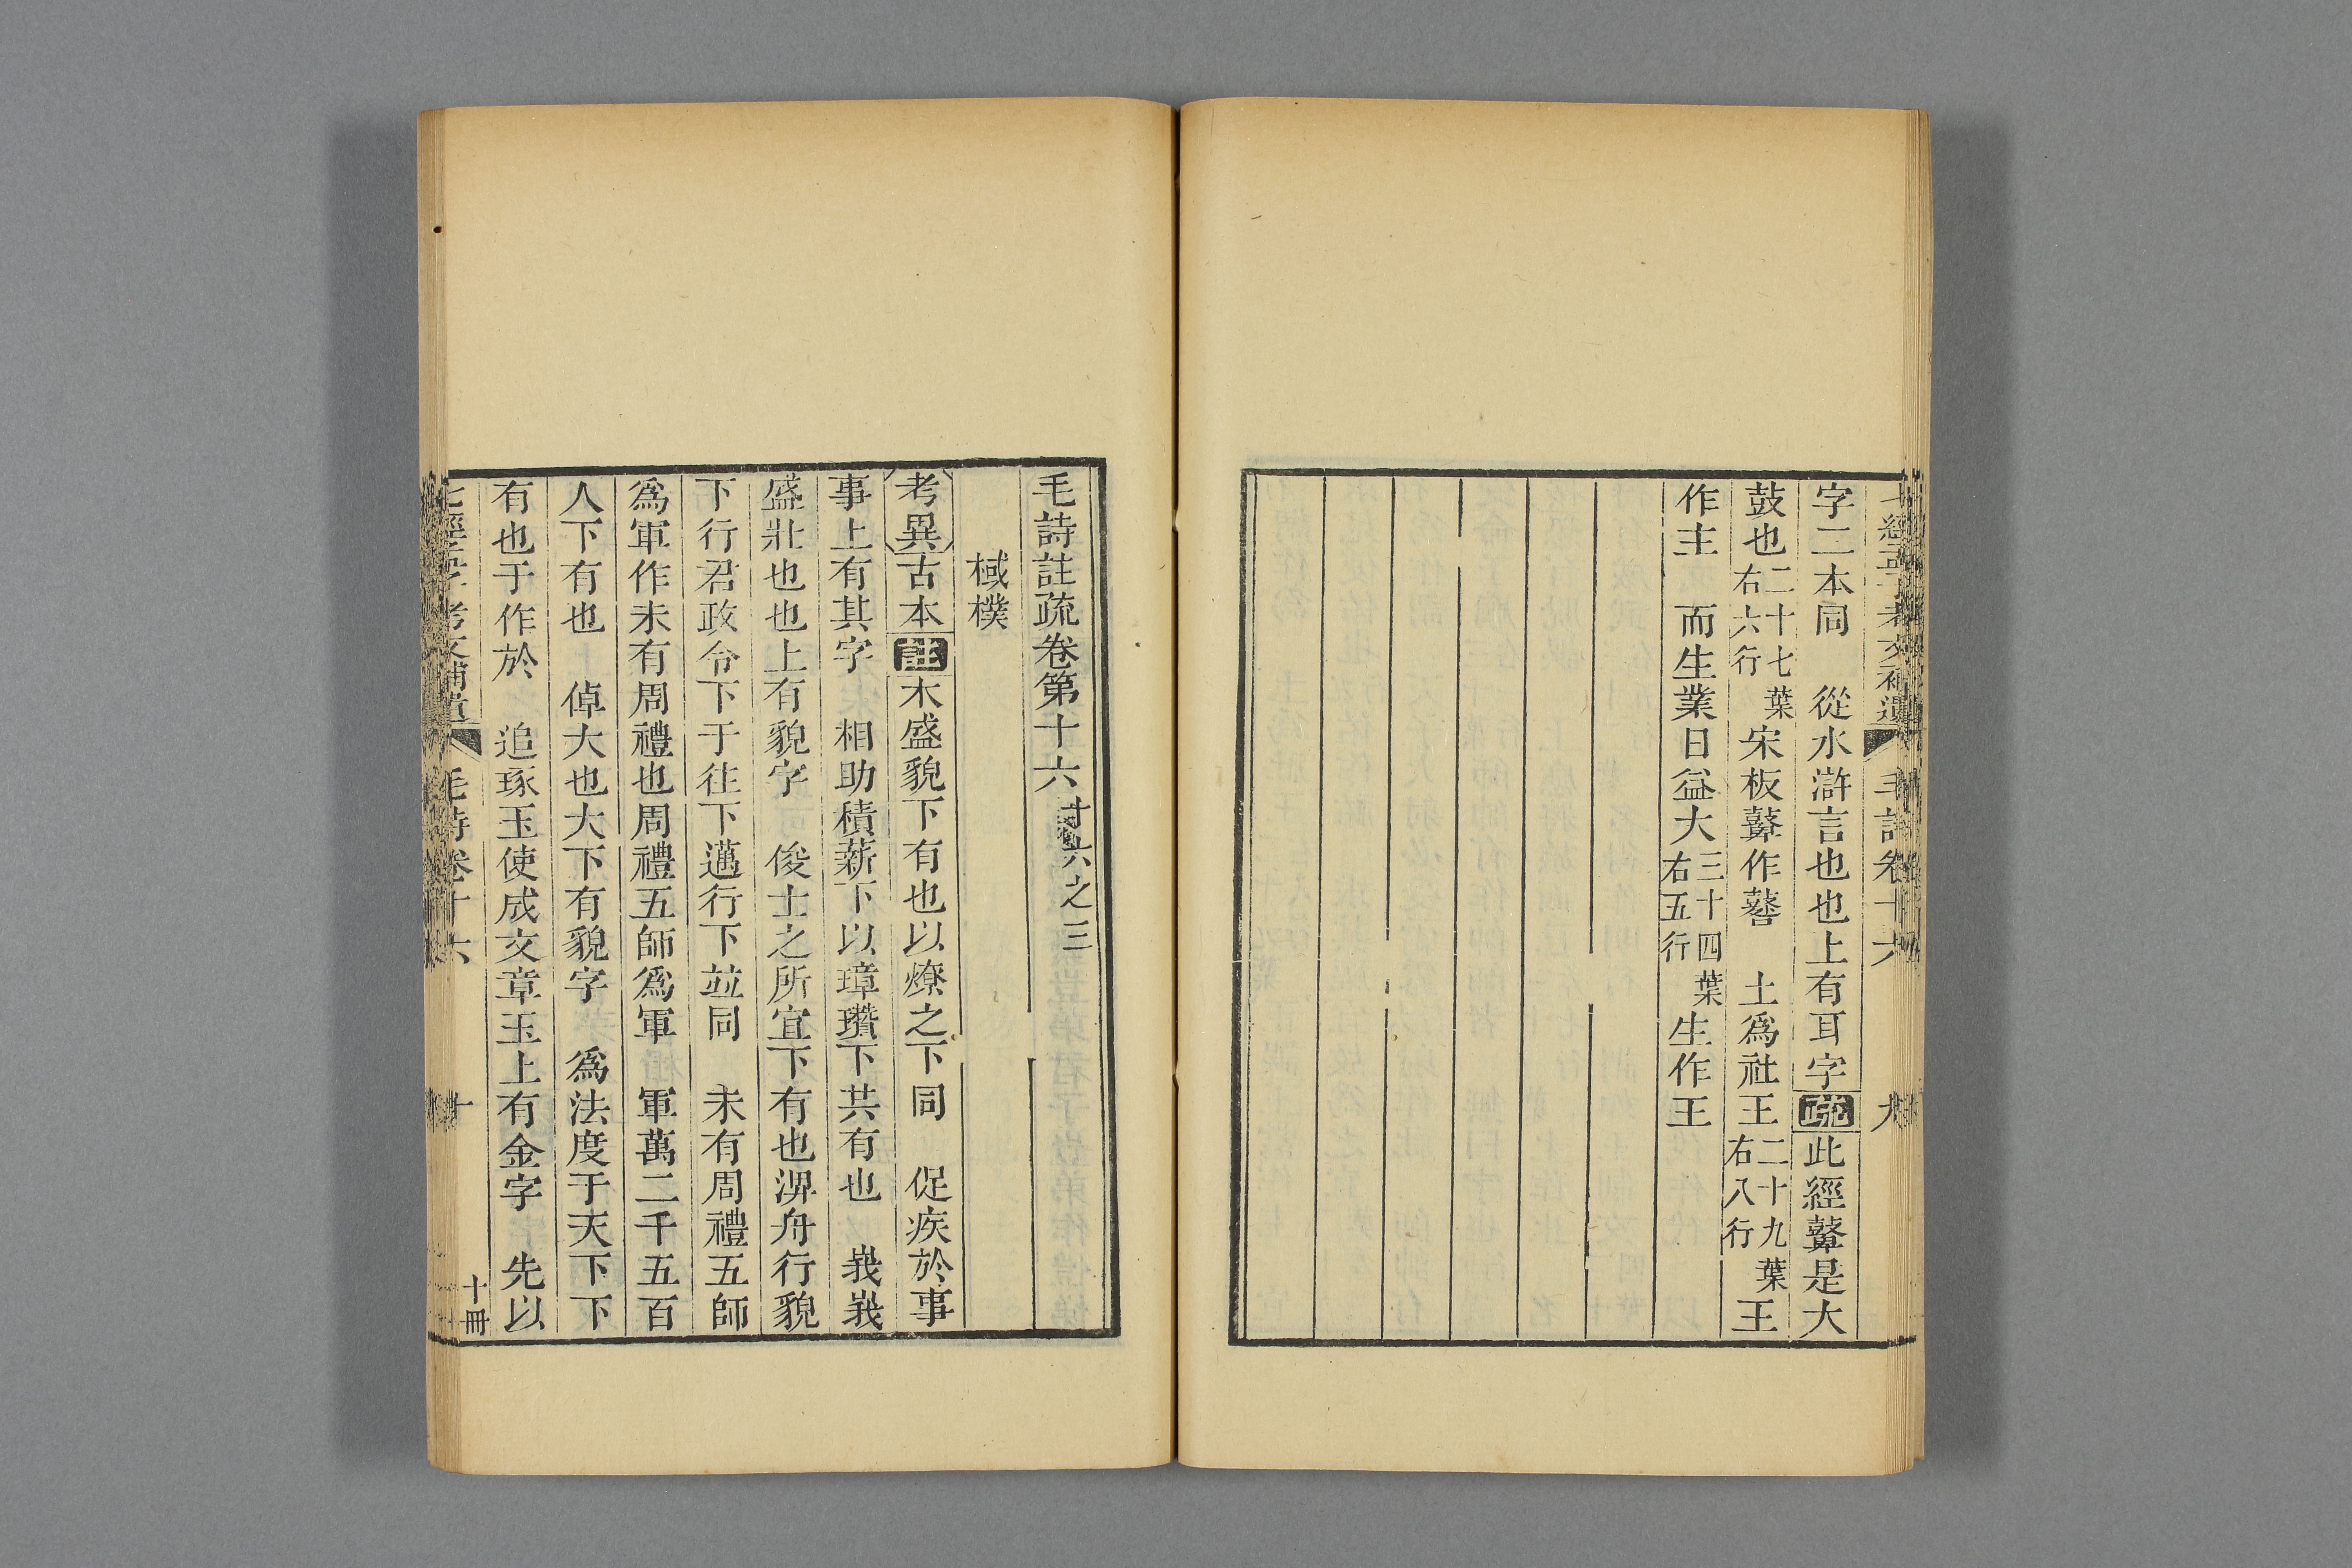 七經孟子考文補遺 毛詩卷十六 九
字二本同 從水滸言也也上有耳字疏此經鼛是大
鼓也二十七葉右六行宋板鼛作鼛 土為社王二十九葉右八行王
作主 而生業日益大三十四葉右五行生作王
毛詩註疏卷第十六十六之三
棫樸
考異古本註木盛貌下有也以燎之下同 促疾於事
事上有其字 相助積薪下以璋瓚下共有也 峩峩
盛壯也也上有貌字 俊士之所宜下有也淠舟行貌
下行君政令下于往下邁行下並同 未有周禮五師
爲軍作未有周禮也周禮五師爲軍 軍萬二千五百
人下有也 倬大也大下有貌字 爲法度于天下下
有也于作於 追琢玉使成文章玉上有金字 先以
七經孟子考文補遺 毛詩卷十六 十 十冊